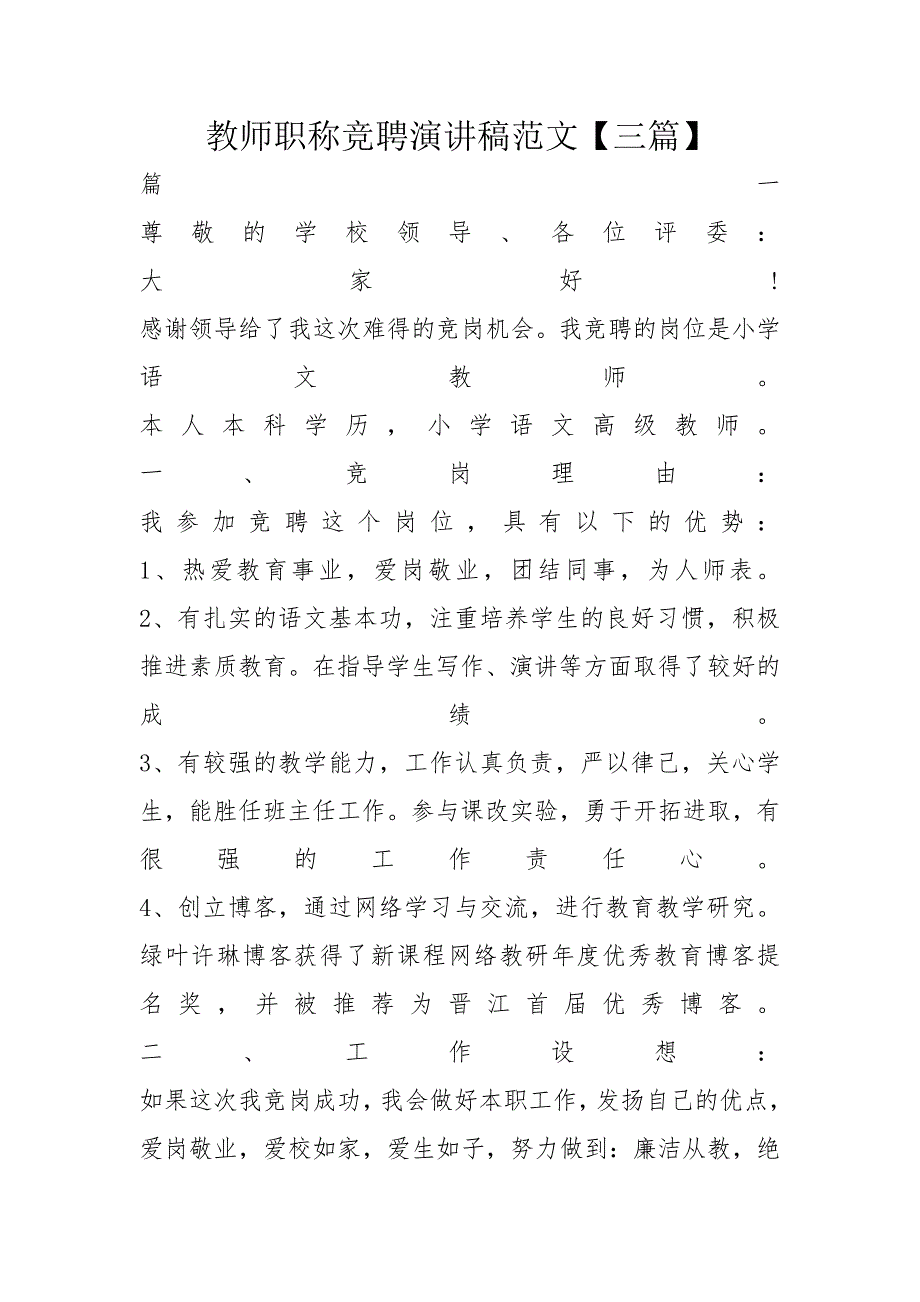 教师职称竞聘演讲稿范文【三篇】
篇一
尊敬的学校领导、各位评委：
大家好！
感谢领导给了我这次难得的竞岗机会。我竞聘的岗位是小学
语文教师。
本人本科学历，小学语文高级教师。
一、竞岗理由：
我参加竞聘这个岗位，具有以下的优势：
1、热爱教育事业，爱岗敬业，团结同事，为人师表。
2、有扎实的语文基本功，注重培养学生的良好习惯，积极
推进素质教育。在指导学生写作、演讲等方面取得了较好的
成绩。
3、有较强的教学能力，工作认真负责，严以律己，关心学
生，能胜任班主任工作。参与课改实验，勇于开拓进取，有
很强的工作责任心。
4、创立博客，通过网络学习与交流，进行教育教学研究。
绿叶许琳博客获得了新课程网络教研年度优秀教育博客提
名奖，并被推荐为晋江首届优秀博客。
二、工作设想：
如果这次我竞岗成功，我会做好本职工作，发扬自己的优点，
爱岗敬业，爱校如家，爱生如子，努力做到：廉洁从教，绝